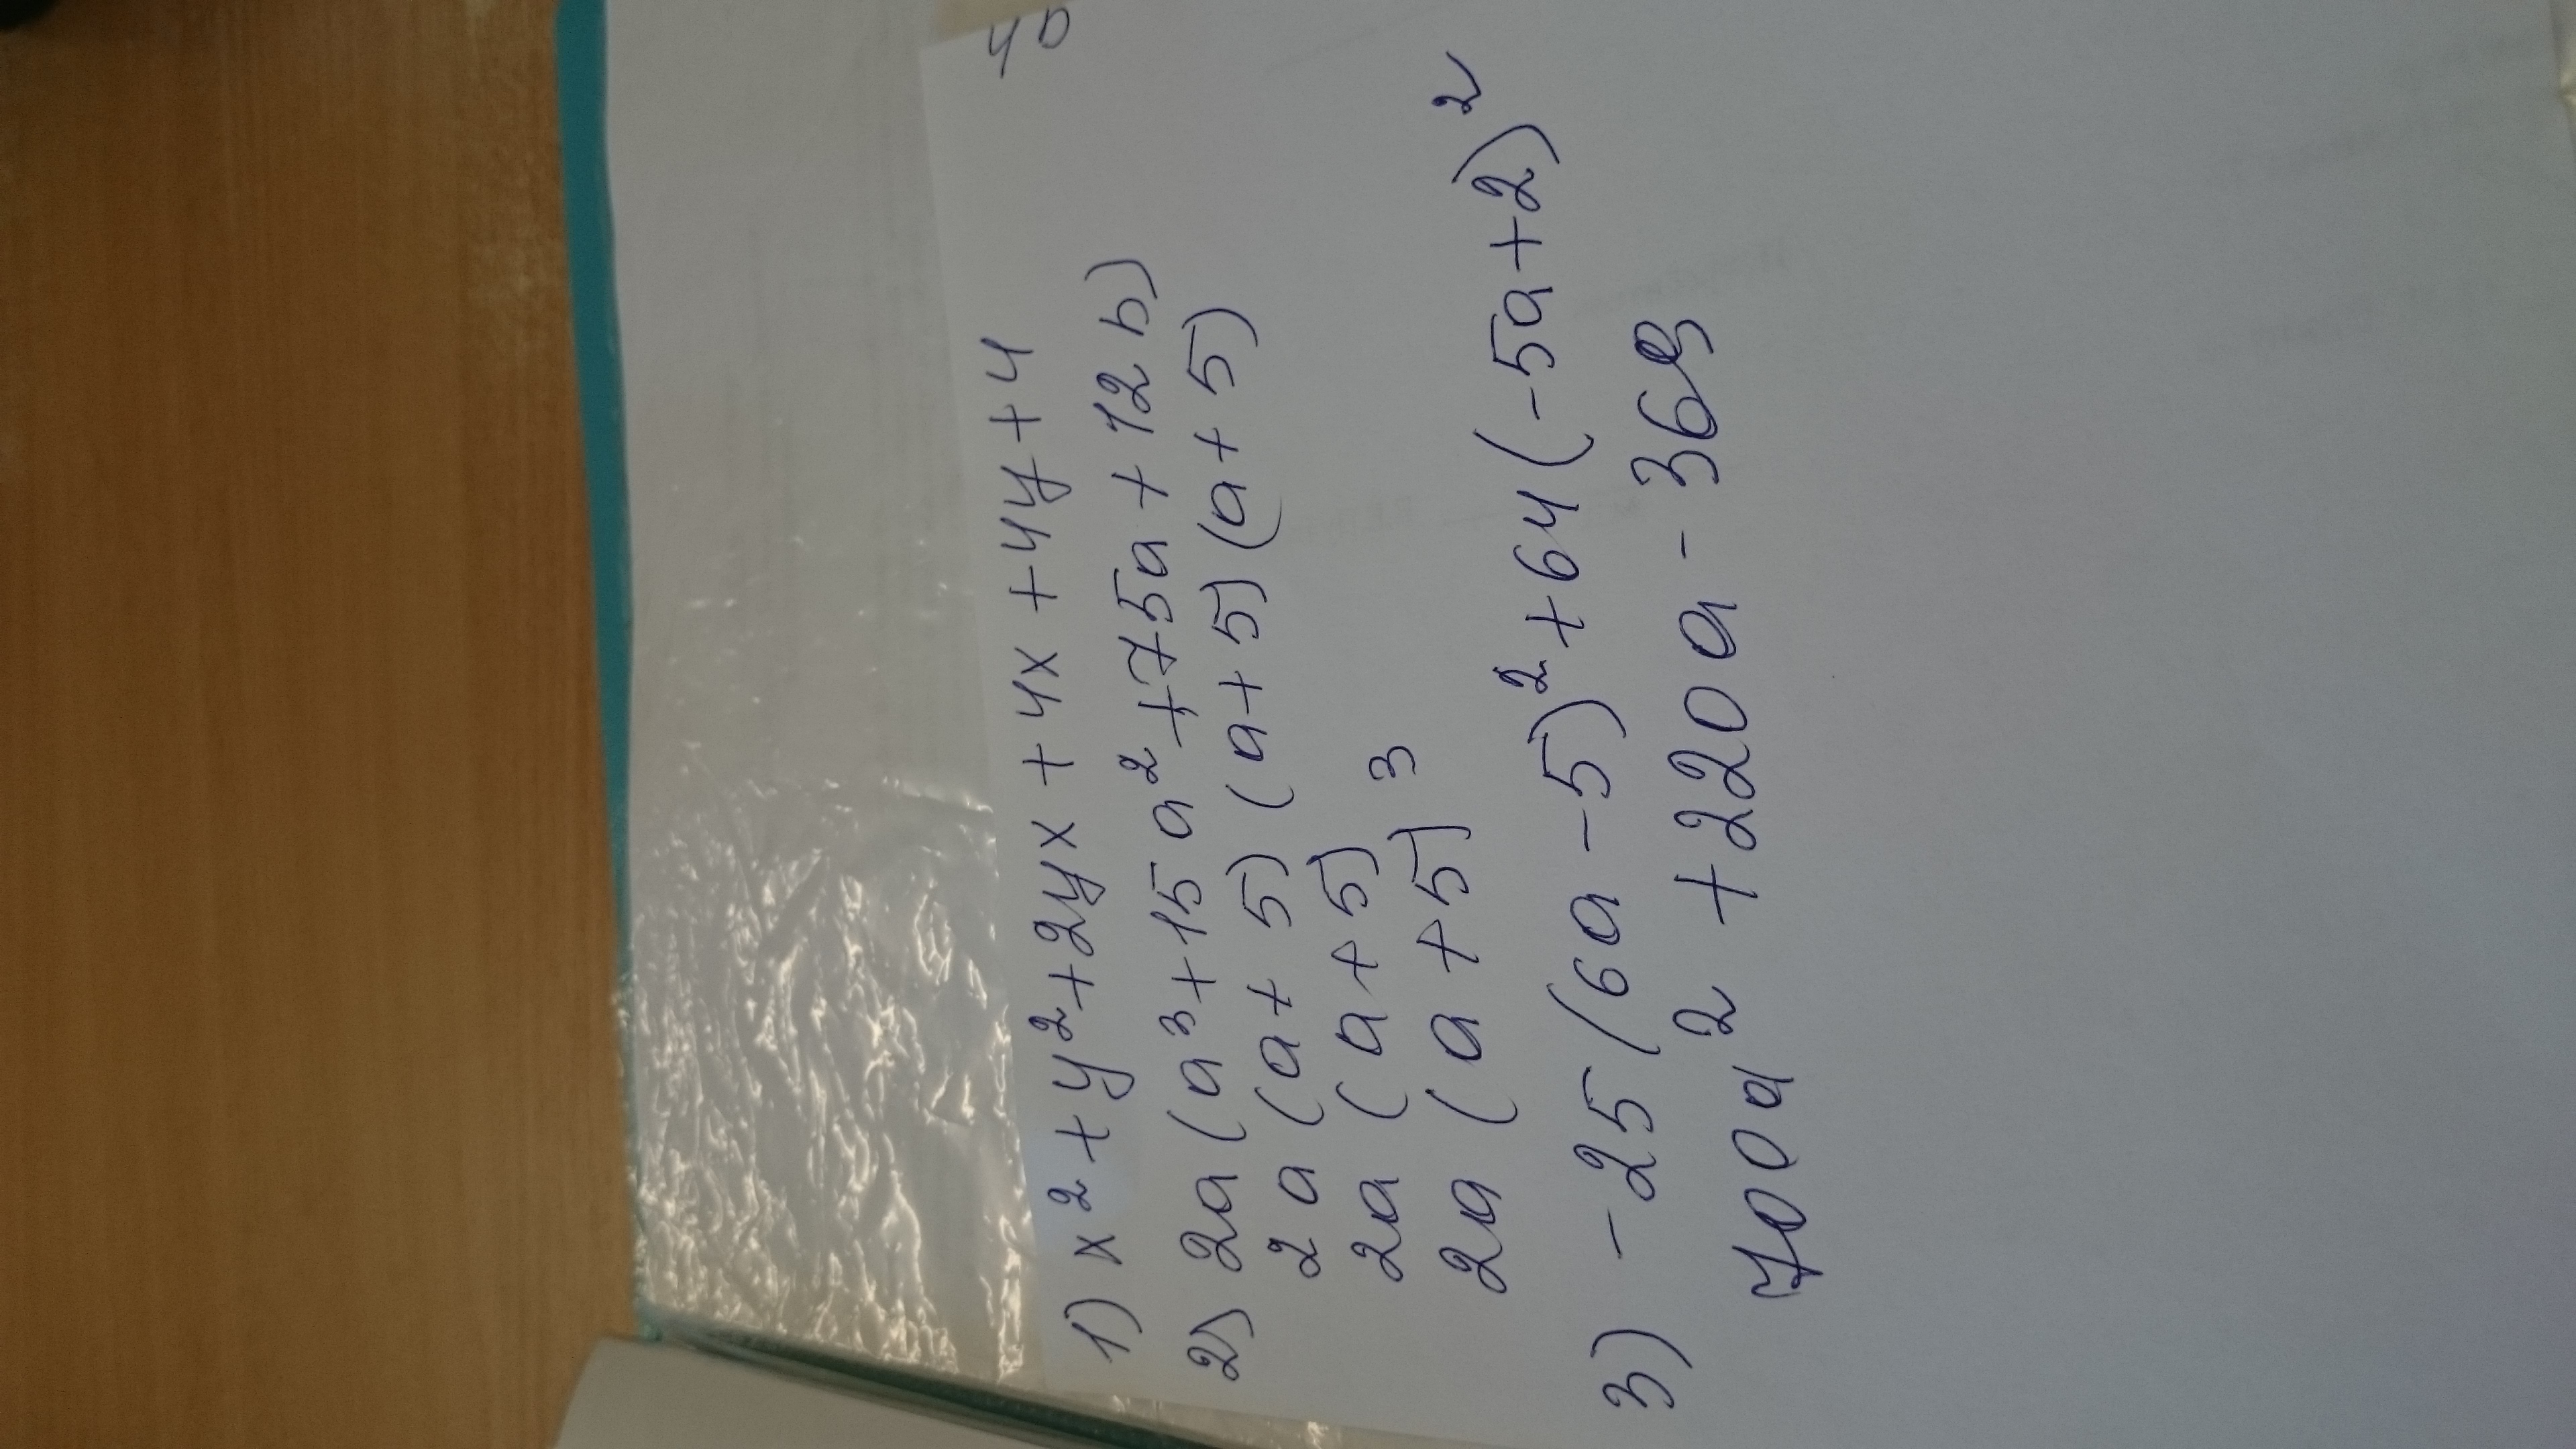 4b
1) x² + y² + 2yx + 4x + 4y + 4
2) 2a (a³ + 15 a² + 75a + 12 b)
2 a (a + 5) (a + 5) (a + 5)
2a (a + 5)
2a (a + 5)³
3) - 25 (6a - 5)² + 64 (-5a + 2)²
700 a² + 220 a - 369